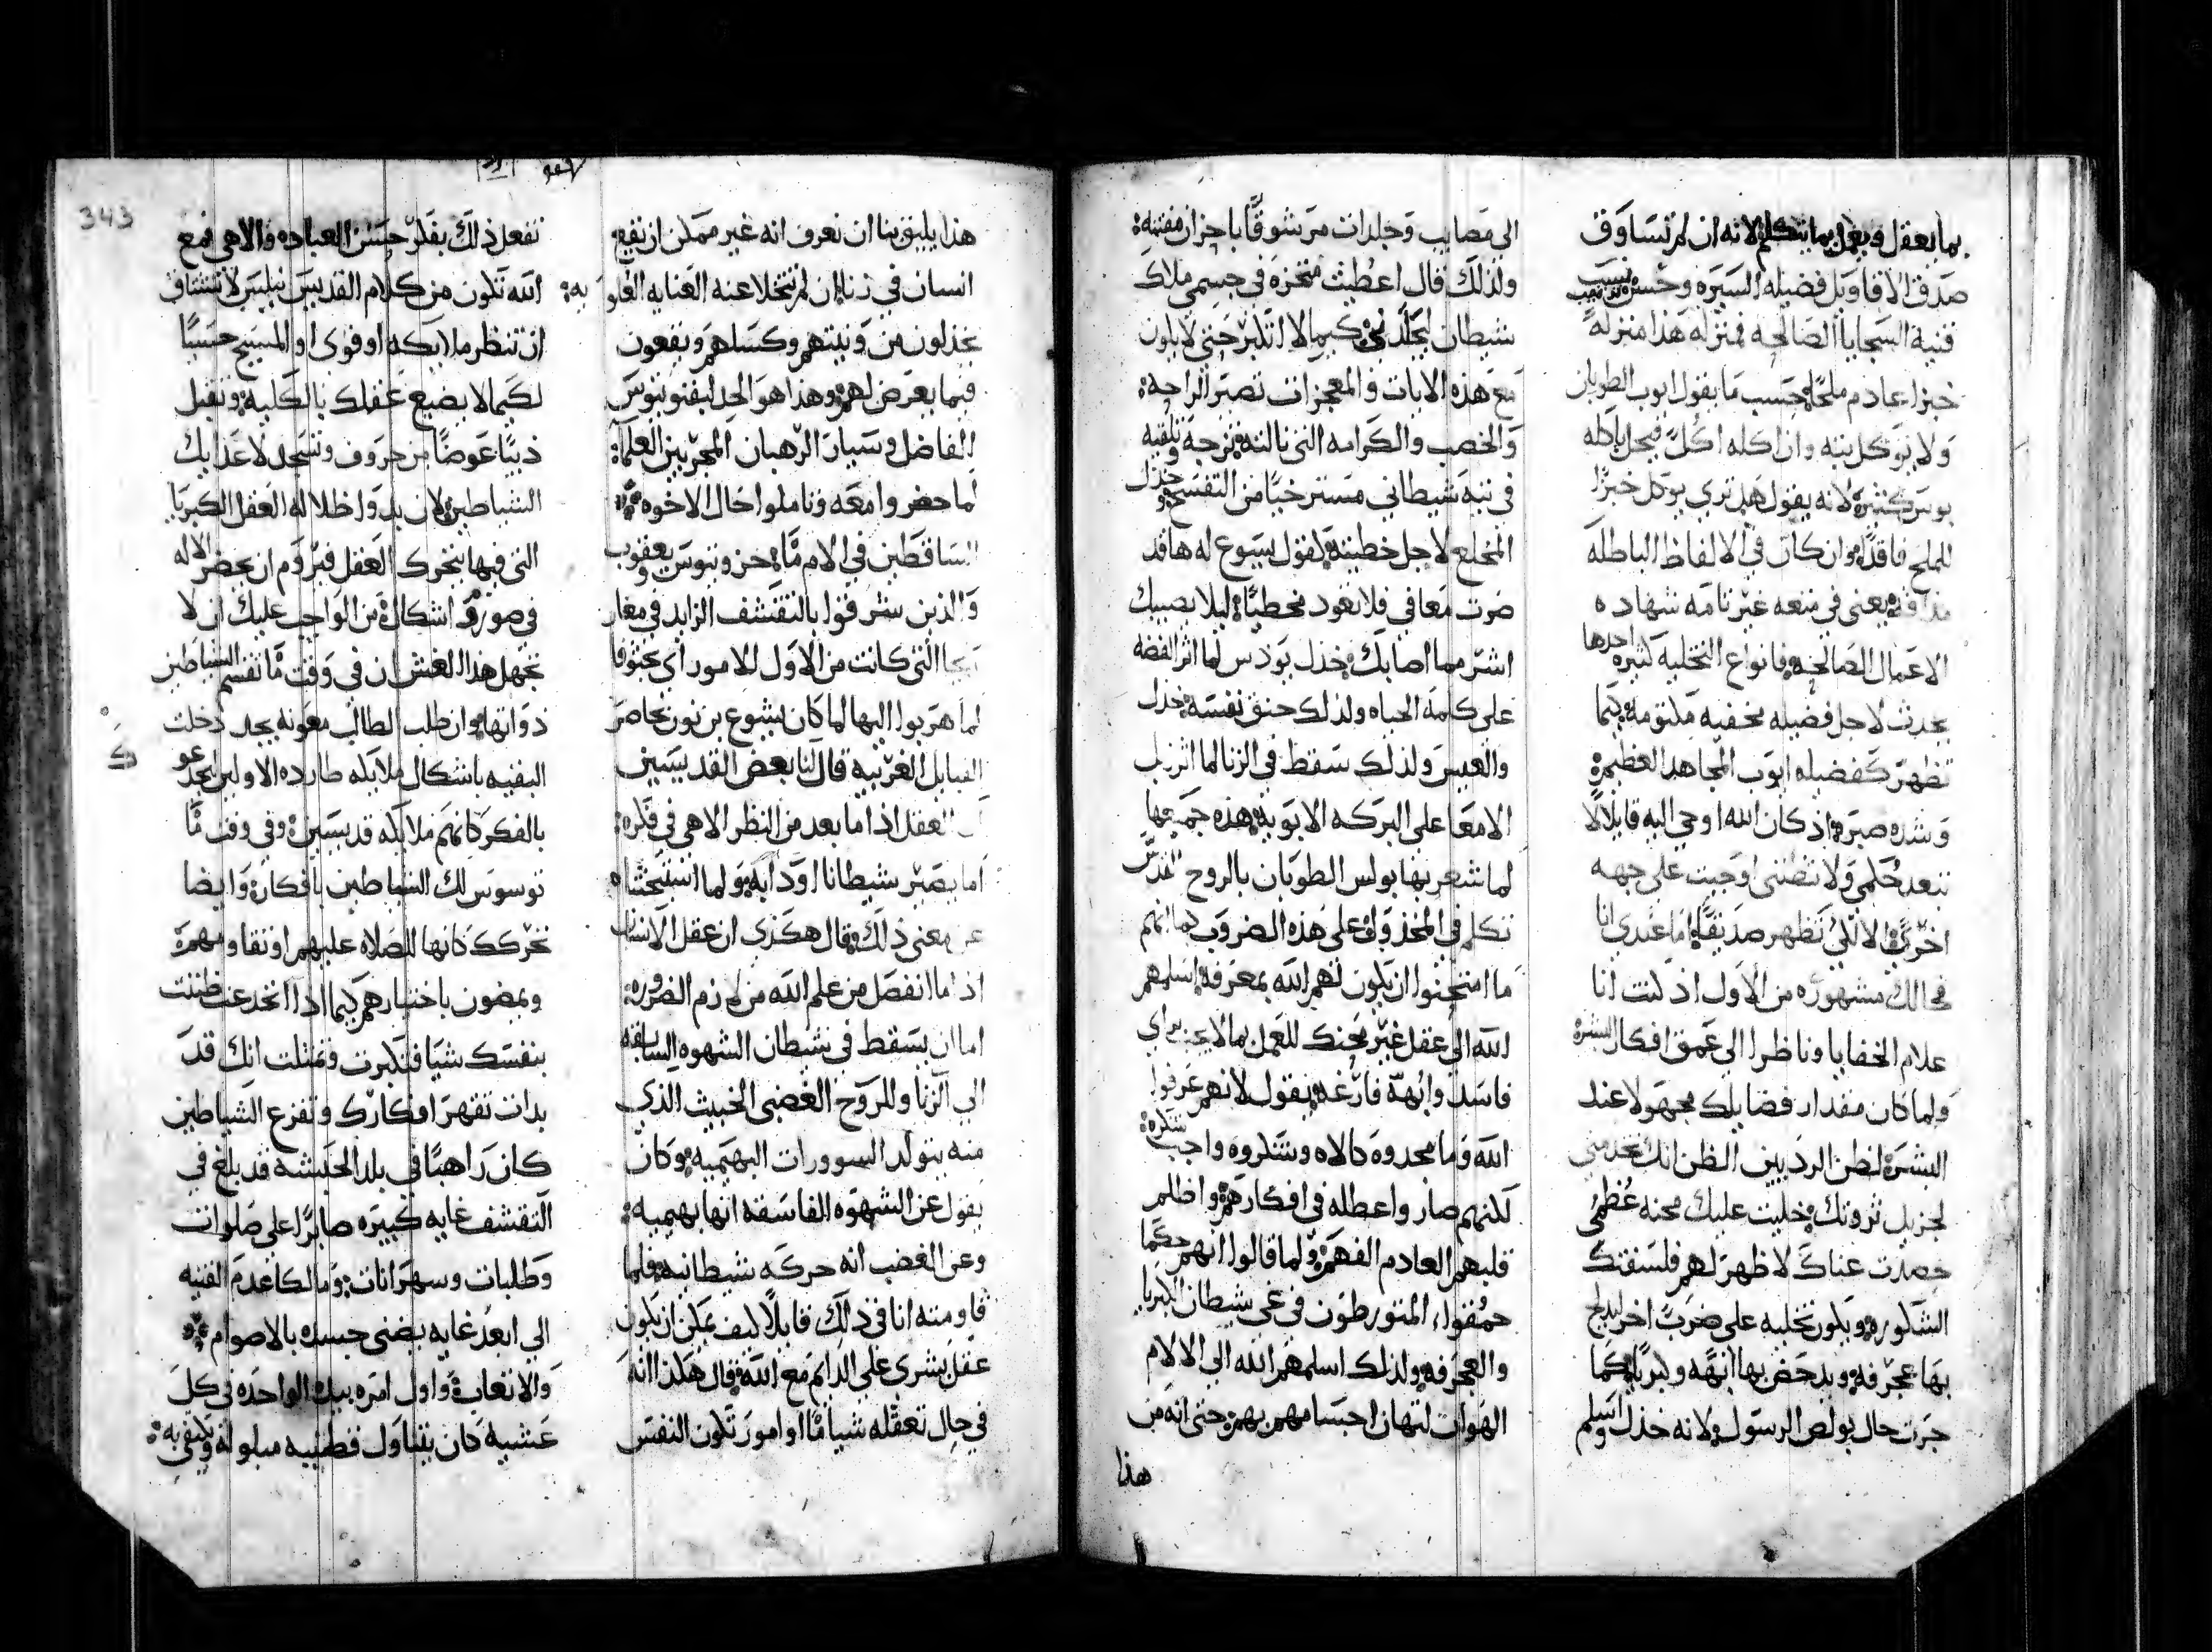 بما يعقل ويعمل بما يتكلم لانه ان لم تساوق
صدق الاقاويل فضيله السيره وحسن
قنية السجايا الصالحه فمنزله هذا منزله
خبزا عادم ملحا حسب ما يقول ايوب الطوبان
ولا يوكل بته وان اكله اكل فيحل باكله
بوس كثيره لانه يقول هل تري يوكل خبزا
للملح فاقدا وان كان في الالفاظ الباطله
مذاقه يعني في منعه غير تامه شهاده
الاعمال الصالحه فانواع التخليه كثيره احدها
يحدث لاجل فضيله مخفيه مكتومه كيما
تظهر كفضيله ايوب المجاهد العظيمة
وشده صبره اذ كان الله اوحي اليه قايلا لا
تبعد حكمي ولا تضنني اوحيت علي جهه
اخري الا لكي تظهر صديقا اما عندي انا
فحالك مشهوره من الاول اذ كنت انا
علام الخفايا وناظرا الي عمق افكار البشره
ولما كان مقدار فضايلك مجهولا عند
البشره لظن الرديين الظن انك تخدمني
لجزيل ثروتك خليت عليك محنه عظمي
حصدت غناك لاظهر لهم فلسفتك
الشكوره ويكون تخليه علي ضرب اخر ليدلج
بها عجرفه ويدحض بها ابهه وكبريا كما
جرت حال بولص الرسول لانه خذل واسلم
الي مصايب وجلدات مرشوقا باحزان مفتنه
ولذلك قال اعطيت منخزه في جسمي ملاك
شيطان ليجلدني كيما لا اتكبر حتي لا يكون
مع هذه الايات والمعجزات تصير الراحه
والخصب والكرامه التي نالته تزجه وتلقيه
في تيه شيطاني مستر خيا من التفسح وخذل
المخلع لاجل خطيته لقول يسوع له ها قد
صرت معافي فلا تعود مخطيا ليلا يصيبك
اشر مما اصابك وخذل يودس لما اثر الفضه
علي كلمة الحياه ولذلك خنق نفسه خذل
والعيس ولذلك سقط في الزنا لما اثر زب
الامعا علي البركه الابويه هذه جميعها
لما شعر بها بولس الطوبان بالروح القدس
تكلم في المخذولين علي هذه الضروب كما انهم
ما امتحنوا ان يكون لهم الله بمعرفه اسلمهم
الله الي عقل غير محنك للعمل بما لا يجب براي
فاسد وابهة فارغه يقول لانهم عرفوا
الله وما مجدوه كالاه وشكروه واجب شكره
لكنهم صاروا عطله في افكارهم واظلم
قلبهم العادم الفهم ولما قالوا انهم حكما
حمقوا المتورطون في غي شيطان الكبريا
والعجرفه ولذلك اسلمهم الله الي الالام
الهوان لتهان اجسامهم بهم حتي انه من
هذا
هذا يليق بنا ان نعرف انه غير ممكن ان يقع
انسان في زنا ان لم تتخلا عنه العنايه العلويه
يخذلون من ونيتهم وكسلهم ويقعون
فيما يعرض لهم وهذا هو الحد لبفنوتيوس
الفاضل وسيار الرهبان المجربين العلما
لما حضروا معه وتاملوا حال الاخوه
الساقطين في الام ما يحزن وبنوس يعقوب
والذين شرفوا بالتقشف الزايد في مغاير
التي كانت من الاول للامور اي يحتوها
لما هربوا اليها لما كان يشوع بن نون يحاصر
القبايل الغريبه قال لنا بعض القديسين
العقل اذا ما بعد من النظر الاهي في فكره
اما يصير شيطانا او دابه ولما استبحثناه
عن معني ذلك وقال هكذي ان عقل الانسان
اذا ما انفصل من علم الله من لازم الضروره
اما ان يسقط في شيطان الشهوه السايقه
الي الزنا وللروح الغضبي الخبيث الذي
منه يتولد السوورات البهيميه وكان
يقول عن الشهوه الفاسقه انها بهيميه
وعن الغضب انه حركه شيطانيه فلما
قاومته انا في ذلك قايلا كيف يمكن ان يكون
عقل بشري علي الدايم مع الله قال هكذا انه
في حال تعقله شيا ما او امور تكون النفس
343
تفعل ذلك بفكر حسن العباده والاهي فمع
الله تكون من كلام القديس نيلس لا تشتاق
ان تنظر ملايكه او قوي او المسيح حسيا
لكيما لا يضيع عقلك بالكليه وتقبل
ذيبا عوضا من خروف وتسجد لاعدايك
الشياطين لان بدو اظلاله العقل الكبريا
التي فيها يتحرك العقل فيروم ان يحضر الاله
في صور واشكال من الواجب عليك ان لا
تجهل هذا الغش ان في وقت ما تقسم الشياطين
ذواتها وان طلب الطالب معونه بحد دخلت
البقيه باشكال ملايكه طارده الاولين تخدعو
بالفكر كانهم ملايكه قديسين وفي وقت ما
توسوس لك الشياطين بافكارة وايضا
تحركك كانها للصلاه عليهم او تقاومهم
ويمضون باختيارهم كيما اذا انخدعت ظننت
بنفسك شيا فتكبرت وتمثلت انك قد
بدات تقهر افكارك وتفزع الشياطين
كان راهبا في بلد الحبشه قد بلغ في
التقشف غايه كبيره صابرا علي صلوات
وطلبات وسهرانات ومالكا عدم القنيه
الي ابعد غايه يضني جسده بالاصوام
والاتعاب واول امره بيده الواحده في كل
عشيه كان يتناول قطنيه مبلوله ويكتفي به